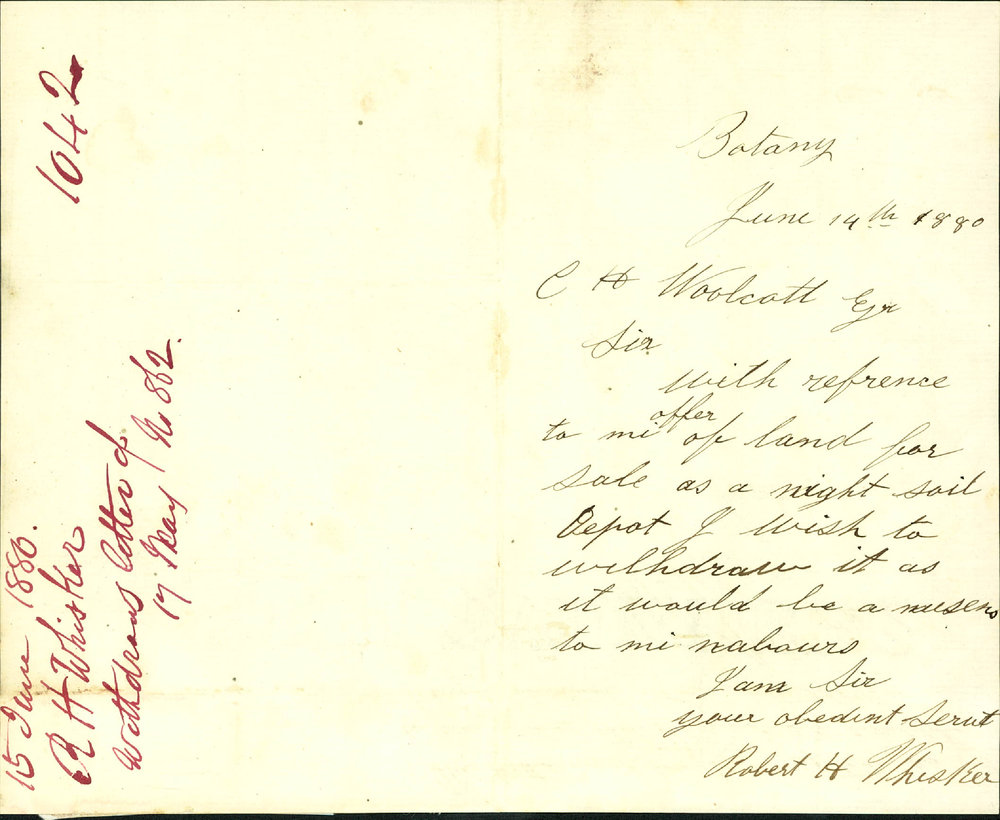 1042
15 June 1880.
R H Whisker
Withdraws letter of
17 May / No 862.
Botany
June 14th 1880
C H Woolcott Eqr
Sir
with refrence
to mi offer of land for
sale as a night soil
Depot I wish to
wilhdraw it as
it would be a nusens
to mi nabours
I am Sir
your obedint Servt
Robert H Whisker